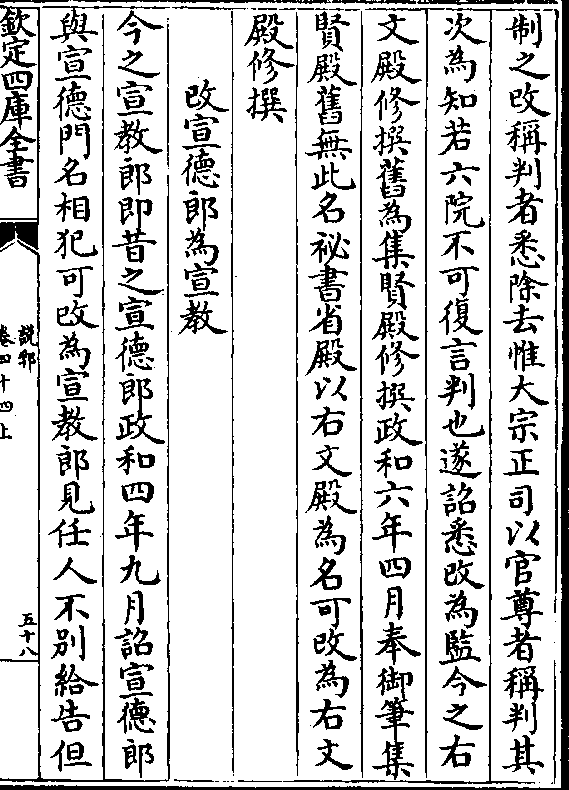 制之改稱判者悉除去惟大宗正司以官尊者稱判其
次為知若六院不可復言判也遂詔悉改為監今之右
文殿修撰舊為集賢殿修撰政和六年四月奉御筆集
賢殿舊無此名祕書省殿以右文殿為名可改為右文
殿修撰
改宣德郎為宣教
今之宣教郎即昔之宣德郎政和四年九月詔宣德郎
與宣德門名相犯可改為宣教郎見任人不別給告但
欽定四庫全書
說郛
卷四十四上
五十八